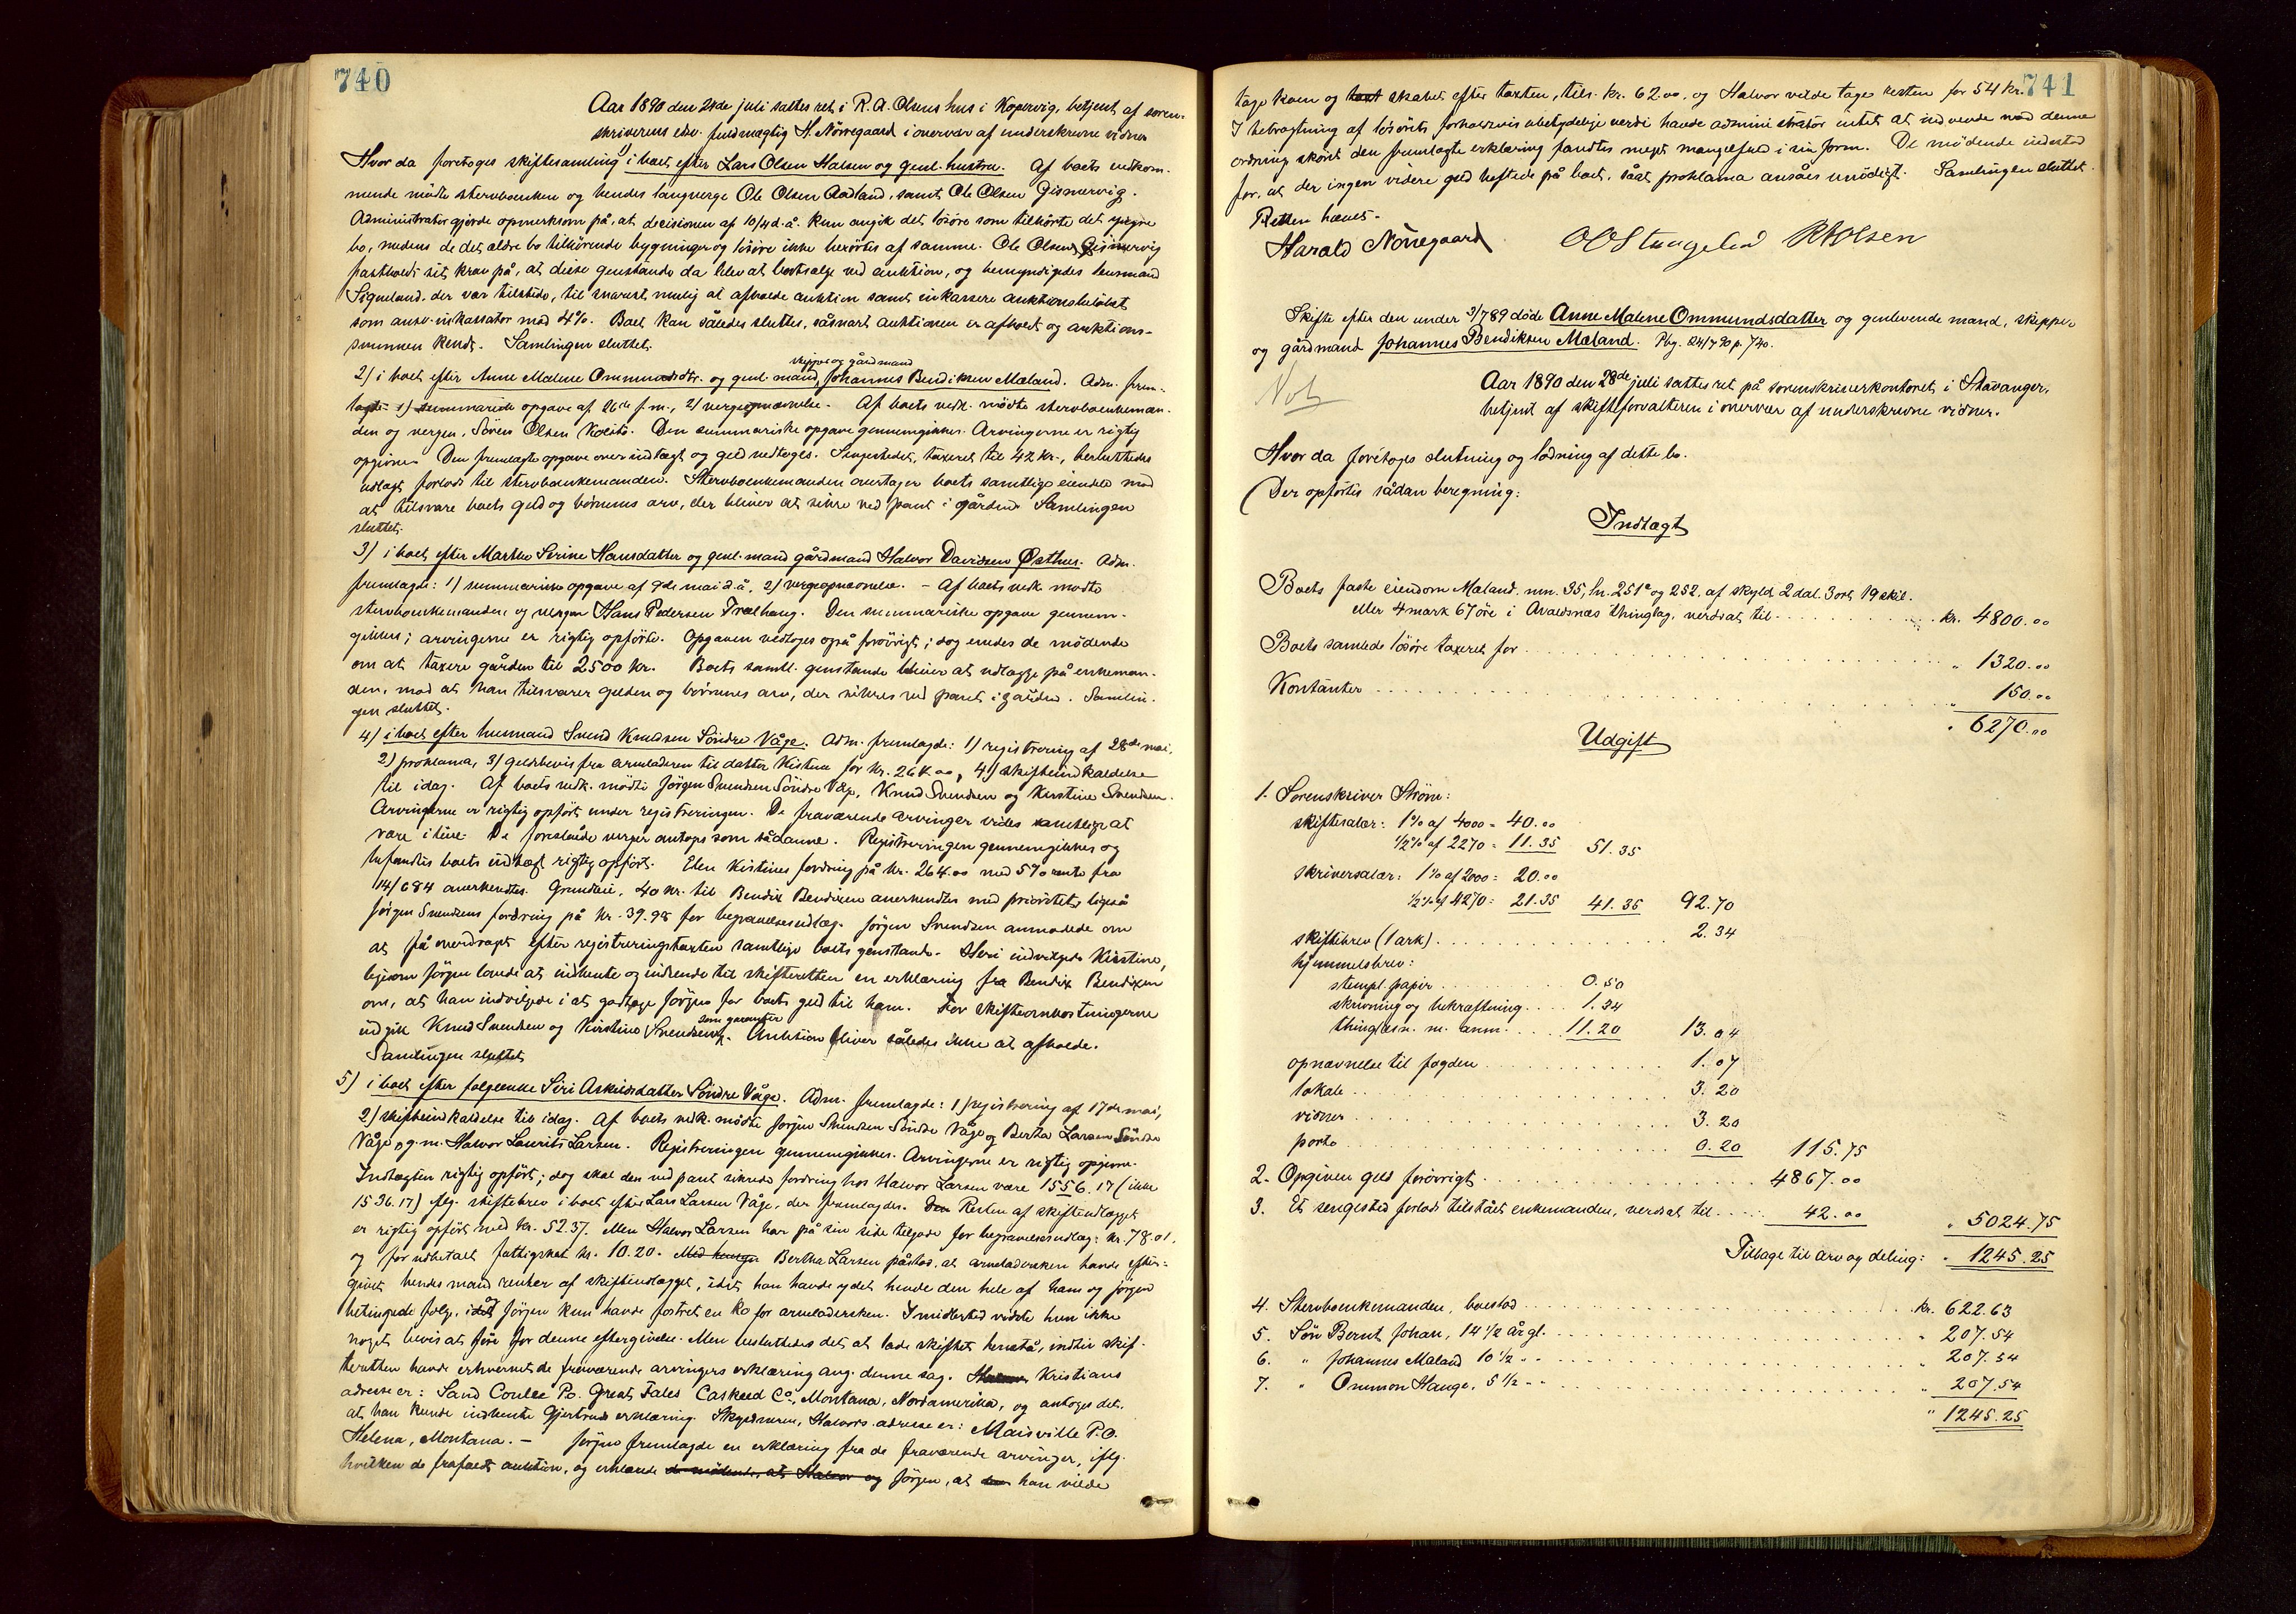 740
Aar 1890 den 24de juli sattes ret i R. A. Olsens hus i Kopervig, betjent af soren-
skriverens edsv. fuldmægtig H. Nörregaard i overvær af underskrevne vidner
Hvor da foretoges skiftesamling 1) i boet efter Lars Olsen Halsen og genl. hustru. Af boets vedkom-
mende mödte stervboenken og hendes laugverge Ole Olsen Aadland, samt Ole Olsen Gismervig.
Administrator gjorde opmerksom på, at decisionen af 10/4 d. å. kun angik det lösöre som tilhörte det yngre
bo, medens de det ældre bo tilhörende bygninger og lösöre ikke berörtes af samme. Ole Olsen Gismervig
fastholdt sit krav på, at disse genstande da blev at bortsælge ved auktion, og bemyndigedes lensmand
Sigueland, der var tilstede, til snarest mulig at afholde auktion samt inkassere auktionsbelöbet
som ansv. inkassator mod 4%. Boet kan således sluttes, såsnart auktionen er afholdt og auktions-
summen kendt. Samlingen sluttet.
skipper og gårdmand
2) i boet efter Anne Malene Ommundsdtr. og genl. mand, Johannes Bendiksen Mæland. Adm. frem-
lagde: 1) summarisk opgave af 26de f. m., 2) vergeopnævnelse. Af boets vedk. mödte stervboenkeman-
den og vergen, Sören Olsen Kolstö. Den summariske opgave gennemgikkes. Arvingerne er rigtig
opgivne. Den fremlagte opgave over indtægt og geld vedtoges. Sengestedet, taxeret til 42 kr., besluttedes
udlagt forlods til stervboenkemanden. Stervboenkemanden overtager boets samtlige eiendele mod
at tilsvare boets geld og börnenes arv, der bliver at sikre ved pant i gården. Samlingen
sluttet.
3) i boet efter Marthe Serine Hansdatter og genl. mand gårdmand Halvor Davidsen Østhus. Adm.
fremlagde: 1) summarisk opgave af 9de mai d. å., 2) vergeopnævnelse. - Af boets vedk. mödte
stervboenkemanden og vergen Hans Pedersen Trælhaug. Den summariske opgave gennem-
gikkes; arvingerne er rigtig opförte. Opgaven vedtoges også forövrigt; dog enedes de mödende
om at taxere gården til 2500 kr. Boets samtl. genstande bliver at udlægge på enkeman-
den, mod at han tilsvarer gelden og börnenes arv, der sikres ved pant i gården. Samlin-
gen sluttet.
4) i boet efter husmand Svend Knudsen Söndre Våge. Adm. fremlagde: 1) registrering af 28de mai,
2) proklama, 3) geldsbevis fra arveladeren til datter Kistine for kr. 264.00, 4) skifteindkaldelse
til idag. Af boets vedk. mödte Jörgen Svendsen Söndre Våge, Knud Svendsen og Kirstine Svendsen.
Arvingerne er rigtig opfört under registreringen. De fraværende arvinger vides samtlige at
være i live. De foreslåede verger antoges som sådanne. Registreringen gennemgikkes og
befandtes boets indtægt rigtig opfört. Elen Kistines fordring på kr. 264.00 med 5% rente fra
14/6 84 anerkendtes. Grundleie, 40 kr. til Bendix Bendixen anerkendtes med prioritet, ligeså
Jörgen Svendsens fordring på kr. 39.98 for begravelsesudlæg. Jörgen Svendsen anmodede om
at få overdraget efter registreringstaxten samtlige boets genstande. Heri indvilgede Kirstine,
ligesom Jörgen lovede at indhente og indsende til skifteretten en erklæring fra Bendix Bendixen
om, at han indvilgede i at godtage Jörgen for boets geld til ham. For skifteomkostningerne
som garantör
indgik Knud Svendsen og Kirstine Svendsen. Auktion bliver således ikke at afholde.
Samlingen sluttet
5) i boet efter folgeenke Siri Askildsdatter Söndre Våge. Adm. fremlagde: 1) registrering af 17de mai,
2) skifteindkaldelse til idag. Af boets vedk. mödte Jörgen Svendsen Söndre Våge og Berta Larsen Söndre
Våge, g. m. Halvor Laurits Larsen. Registreringen gennemgikkes. Arvingerne er rigtig opgivne.
Indtægten rigtig opfört; dog skal den ved pant sikrede fordring hos Halvor Larsen være 1556.17 (ikke
1536.17) iflg. skiftebrev i boet efter Lars Larsen Våge, der fremlagdes. Resten af skifteudlægget
er rigtig opfört med kr. 52.37. Men Halvor Larsen har på sin side tilgode for begravelsesudlæg: kr. 78.01,
og for udbetalt fattigskat kr. 10.20. Med hensyn Bertha Larsen påstod, at arveladersken havde efter-
givet hendes mand renter af skifteudlægget, idet han havde ydet hende den hele af ham og Jörgen
betingede folge, idet Jörgen kun havde fostret en ko for arveladersken. Imidlertid vidste hun ikke
noget bevis at före for denne eftergivelse. Men besluttedes det at lade skiftet henstå, indtil skif-
teretten havde erhvervet de fraværende arvingers erklæring ang. denne sag. Kristians
adresse er: Sand Coulee Po. Great Fales Caskeed Co, Montana, Nordamerika, og antoges det,
at han kunde indhente Gjertruds erklæring. Skyldneren, Halvors adresse er: Maisville P.O.
Helena, Montana. - Jörgen fremlagde en erklæring fra de fraværende arvinger, iflg.
hvilken de frafaldt auktion, og erklærede de mödende, at Halvor og Jörgen, at han vilde
741
tage koen og skabet efter taxten, tils. kr. 62.00, og Halvor vilde tage resten for 54 kr.
I betragtning af lösörets forholdsvis ubetydelige verdi havde administrator intet at indvende mod denne
ordning skönt den fremlagte erklæring fandtes meget mangelfuld i sin form. De mödende indestod
for, at der ingen videre geld heftede på boet, såat proklama ansåes unödigt. Samlingen sluttet.
Retten hævet.
Harald Nörregaard OOStangeland RAOlsen
Skifte efter den under 3/7 89 döde Anne Malene Ommundsdatter og genlevende mand, skipper
og gårdmand Johannes Bendiksen Mæland. Pbg. 24/7 90 p. 740.
Not
Aar 1890 den 28de juli sattes ret på sorenskriverkontoret i Stavanger,
betjent af skifteforvalteren i overvær af underskrevne vidner.
Hvor da foretoges slutning og lodning af dette bo.
Der opförtes sådan beregning:
Indtægt
Boets faste eiendom Mæland, mn. 35, ln. 251a og 252, af skyld 2 dal. 3 ort 19 skil.
eller 4 mark 67 öre i Avaldsnæs thinglag, verdsat til . . . . kr. 4800.00
Boets samlede lösöre taxeret for . . . . " 1320.00
Kontanter . . . . " 150.00
" 6270.00
Udgift
1. Sorenskriver Ström:
skiftesalær: 1% af 4000 = 40.00
1/2% af 2270 = 11.35 51.35
skriversalær: 1% af 2000 = 20.00
1/2% af 4270 = 21.35 41.35 92.70
skiftebrev (1 ark) . . . . 2.34
hjemmelsbrev:
stempl. papir . . . . 0.50
skrivning og bekræftning . . . . 1.34
thinglæsn. m. anm. . . . . 11.20 13.04
opnævnelse til fogden . . . . 1.07
lokale . . . . 3.20
vidner . . . . 3.20
porto . . . . 0.20 115.75
2. Opgiven geld forövrigt . . . . 4867.00
3. Et sengested forlods tilstået enkemanden, verdsat til . . . . 42.00 " 5024.75
Tilbage til arv og deling: " 1245.25
4. Stervboenkemanden, boeslod . . . . kr. 622.63
5. Sön Bernt Johan, 14 1/2 år gl. . . . . " 207.54
6. " Johannes Mæland 10 1/2 " " . . . . " 207.54
7. " Ommon Hauge, 5 1/2 " " . . . . " 207.54
" 1245.25